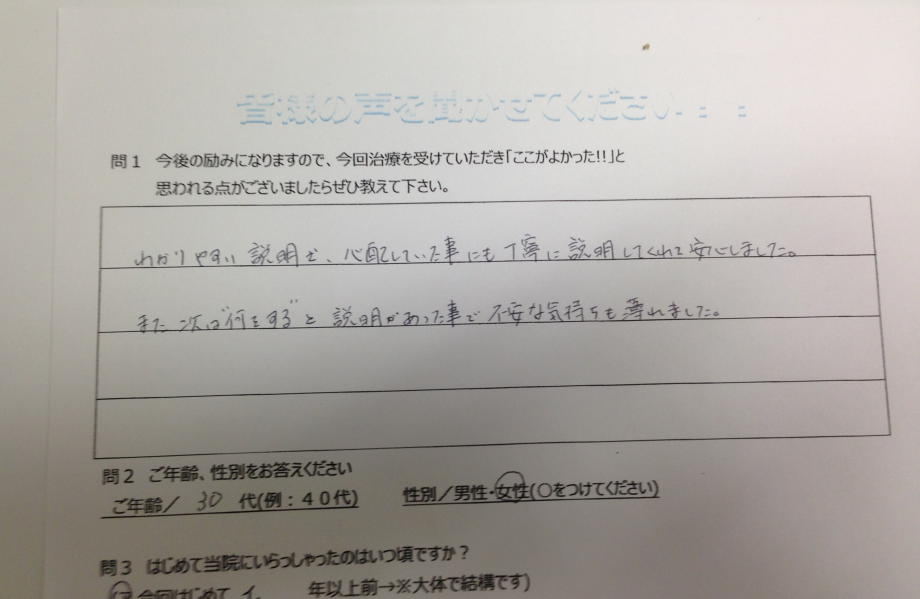 皆様の声を聞かせてください!!!
問1 今後の励みになりますので、今回治療を受けていただき「ここがよかった!!」と
思われる点がございましたらぜひ教えて下さい。
わかりやすい説明で、心配していた事にも丁寧に説明してくれて安心しました。
また次は"何をする"と説明があった事で不安な気持ちも薄れました。
問2 ご年齢、性別をお答えください
ご年齢/ 30 代(例:40代) 性別/男性・女性(○をつけてください)
問3 はじめて当院にいらっしゃったのはいつ頃ですか?
ア 今回はじめて イ. 年以上前→※大体で結構です)